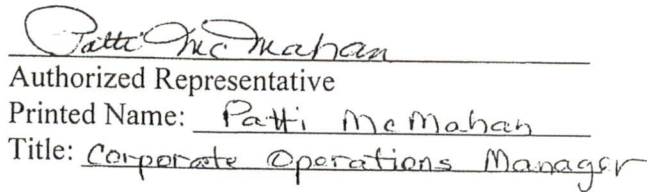 Patti McMahan
Authorized Representative
Printed Name: Patti McMahan
Title: Corporate Operations Manager